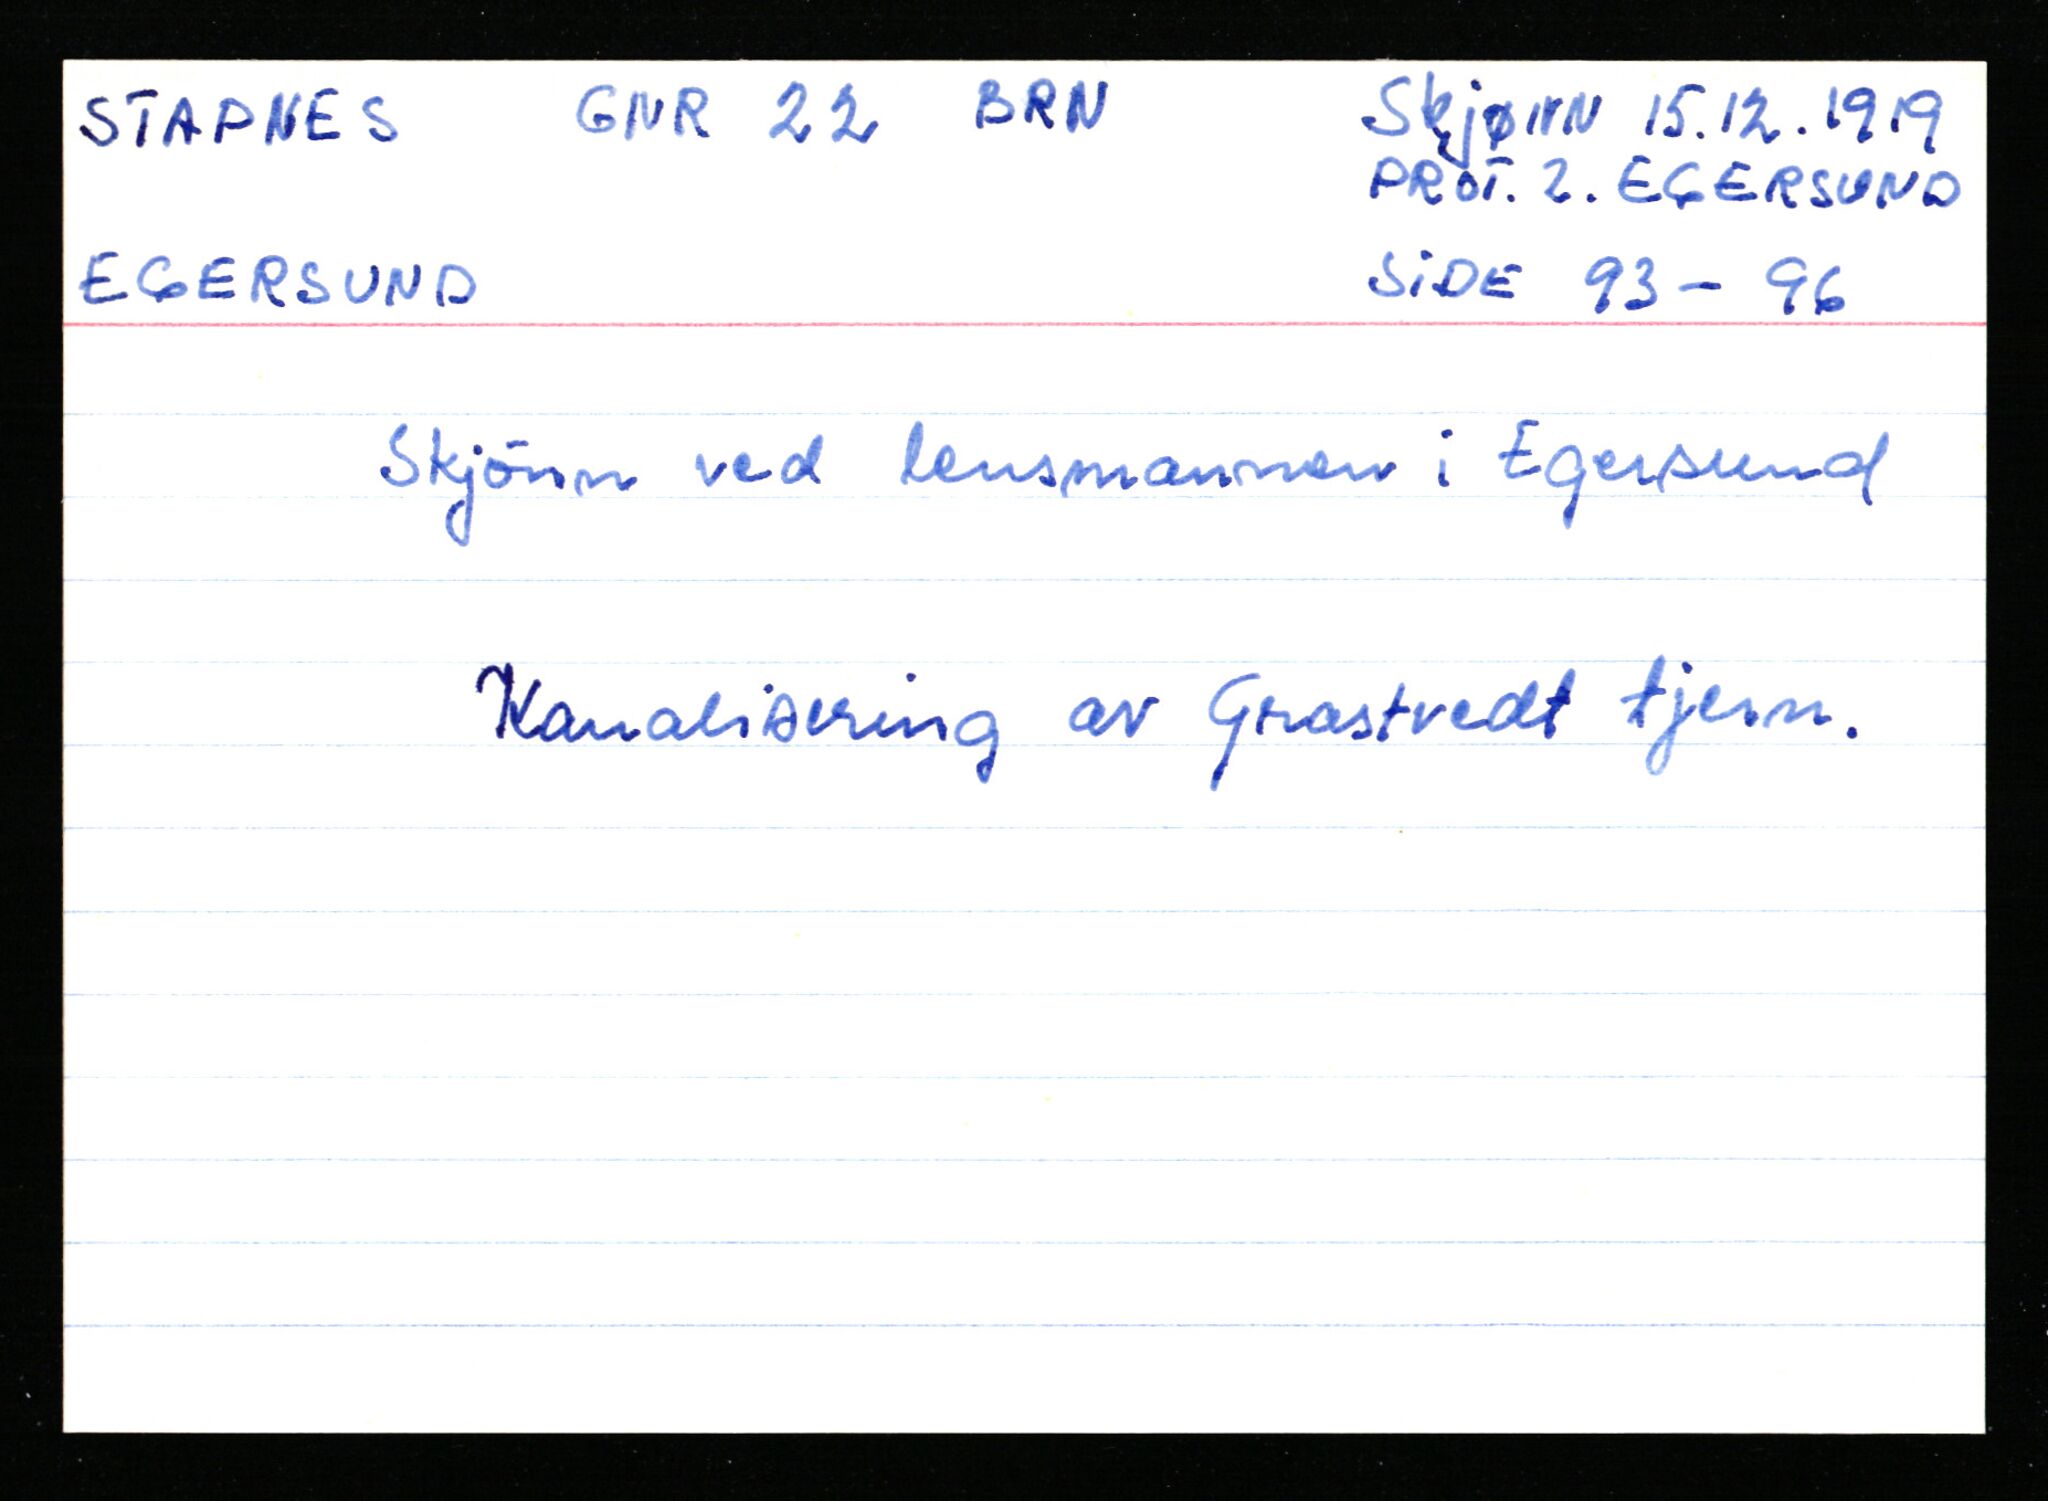 STAPNES GNR 22 BRN Skjønn 15.12.1919
PROT. 2. EGERSUND
EGERSUND SIDE 93 - 96
Skjönn ved lensmannen i Egersund
Kanalisering av Grastvedt tjern.